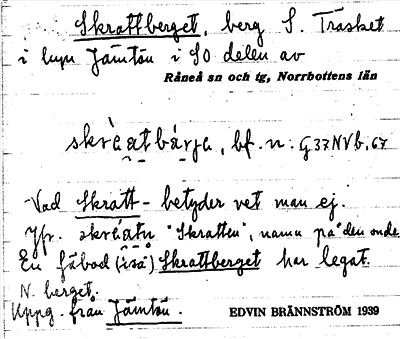 Skrattberget, berg S. Träsket
i byn Jämtön i SO delen av
Råneå sn och tg, Norrbottens län
skrèatbárja, bf. n. G37NVb, 67
Vad Skratt- betyder vet man ej.
Jfr. skréatn "Skratten", namn på den onde
En fäbod (isä) Skrattberget har legat
N. berget.
Uppg. från Jämtön.
EDVIN BRÄNNSTRÖM 1939